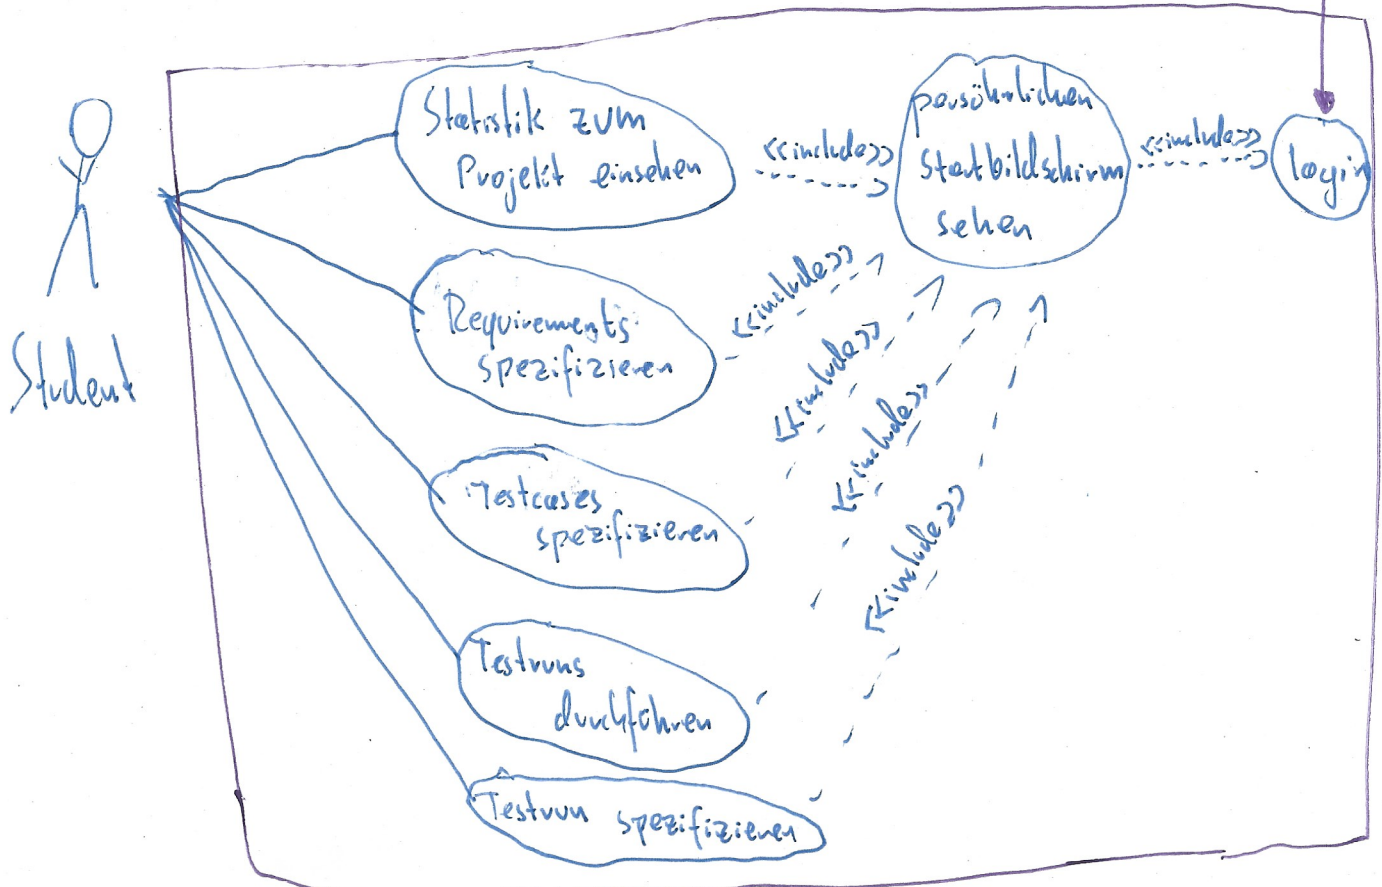 Student
Statistik zum
Projekt einsehen
<<include>>
persöhnlichen
Startbildschirm
sehen
<<include>>
login
Requirements
spezifizieren
<<include>>
Testcases
spezifizieren
<<include>>
Testruns
durchführen
<<include>>
Testrun spezifizieren
<<include>>